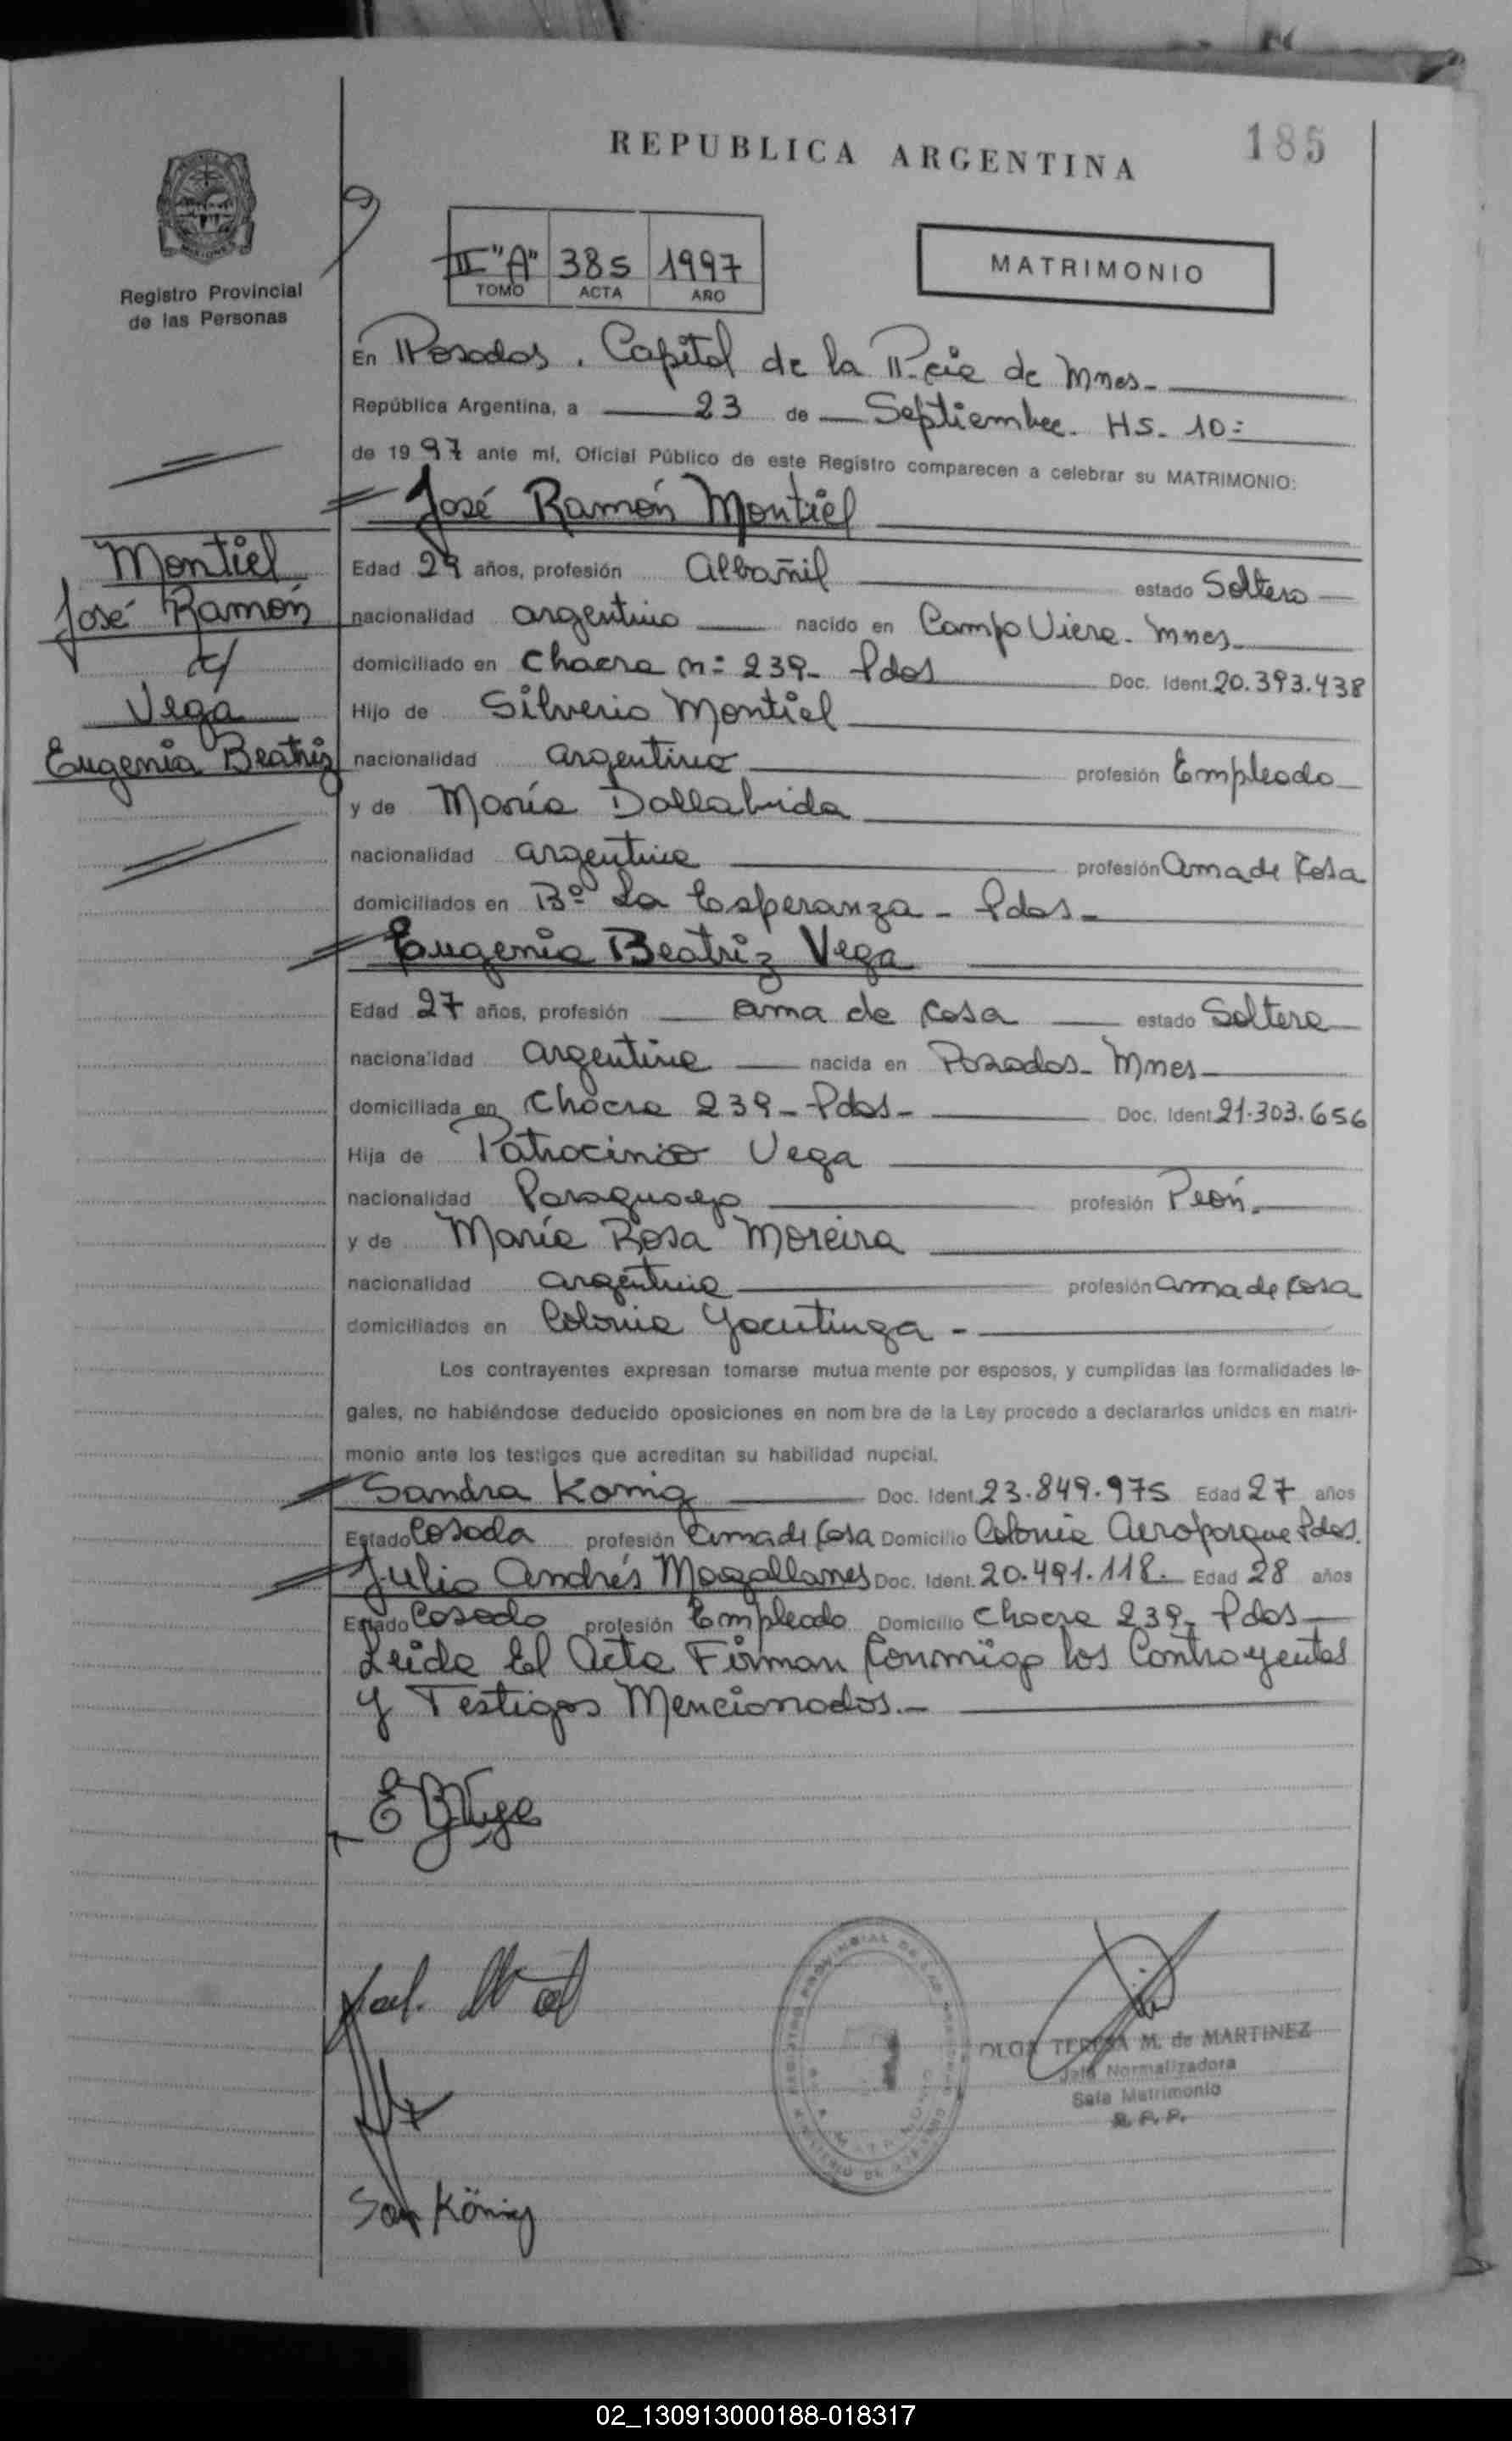 REPUBLICA ARGENTINA
185
Registro Provincial
de las Personas
II "A" 385 1997
TOMO ACTA AÑO
MATRIMONIO
En Posadas. Capital de la Pcia de Mnes-
República Argentina, a 23 de Septiembre. HS. 10:
de 1997 ante mí, Oficial Público de este Registro comparecen a celebrar su MATRIMONIO:
José Ramón Montiel
Montiel
José Ramón
c/
Vega
Eugenia Beatriz
Edad 29 años, profesión Albañil estado Soltero
nacionalidad argentino nacido en Campo Viera. Mnes.
domiciliado en Chacra n: 239- Pdas Doc. Ident. 20.393.438
Hijo de Silverio Montiel
nacionalidad argentino profesión Empleado
y de María Dallabrida
nacionalidad argentina profesión ama de Casa
domiciliados en Bº La Esperanza - Pdas-
Eugenia Beatriz Vega
Edad 27 años, profesión ama de casa estado Soltera
nacionalidad argentina nacida en Posadas- Mnes
domiciliada en Chacra 239- Pdas- Doc. Ident. 21.303.656
Hija de Patrocinio Vega
nacionalidad Paraguayo profesión Peón.
y de María Rosa Moreira
nacionalidad argentina profesión ama de casa
domiciliados en Colonia Yacutinga -
Los contrayentes expresan tomarse mutua mente por esposos, y cumplidas las formalidades le-
gales, no habiéndose deducido oposiciones en nom bre de la Ley procedo a declararlos unidos en matri-
monio ante los testigos que acreditan su habilidad nupcial.
Sandra Konig Doc. Ident. 23.849.975 Edad 27 años
Estado Casada profesión ama de Casa Domicilio Colonia Aeroparque Pdas.
Julio Andrés Magallanes Doc. Ident. 20.491.118. Edad 28 años
Estado Casado profesión Empleado Domicilio Chacra 239- Pdas
Leida El Acta Firman Conmigo los Contrayentes
y Testigos Mencionados.-
E B Vega
OLGA TERESA M. de MARTINEZ
Jefa Normalizadora
Sala Matrimonio
R. P. P.
San König
02_130913000188-018317